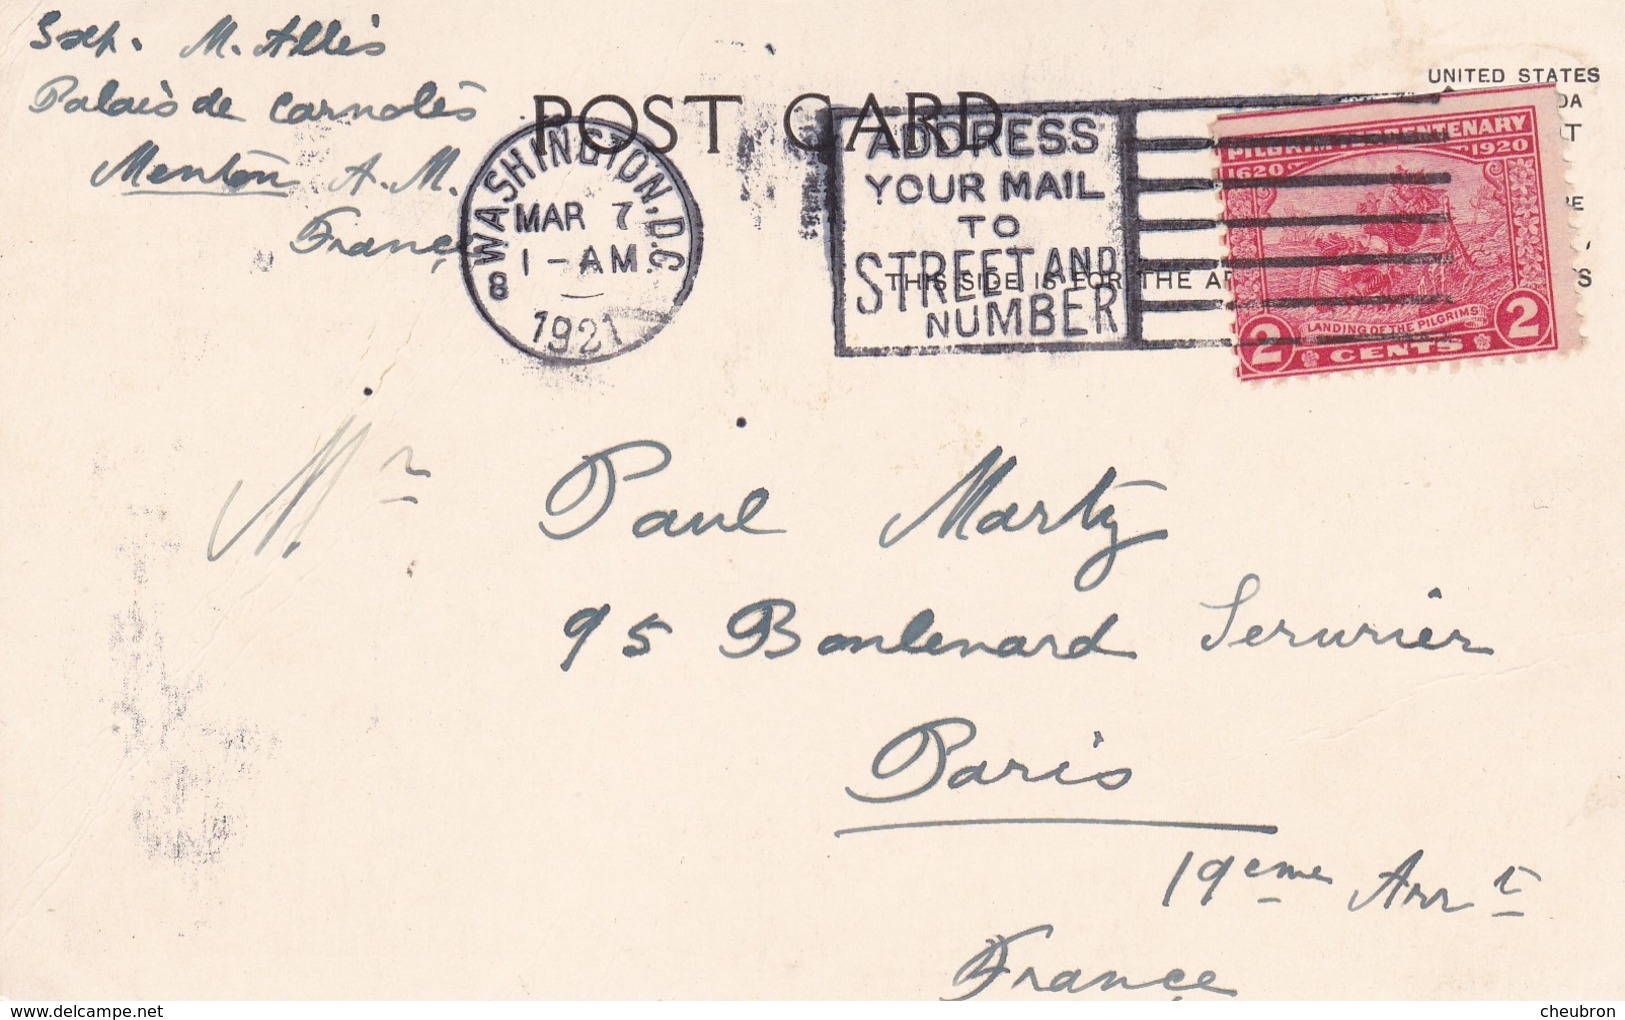 Exp. M. Allès
Palais de Carnolès
Menton A. M.
France
POST CARD
UNITED STATES
WASHINGTON, D.C.
MAR 7
1-AM.
1921
8
ADDRESS
YOUR MAIL
TO
STREET AND
NUMBER
THIS SIDE IS FOR THE
PILGRIM TERCENTENARY
1620 1920
LANDING OF THE PILGRIMS
2 CENTS 2
Mr Paul Marty
95 Boulevard Serurier
Paris
19eme Arrt
France
delcampe.net
cheubron